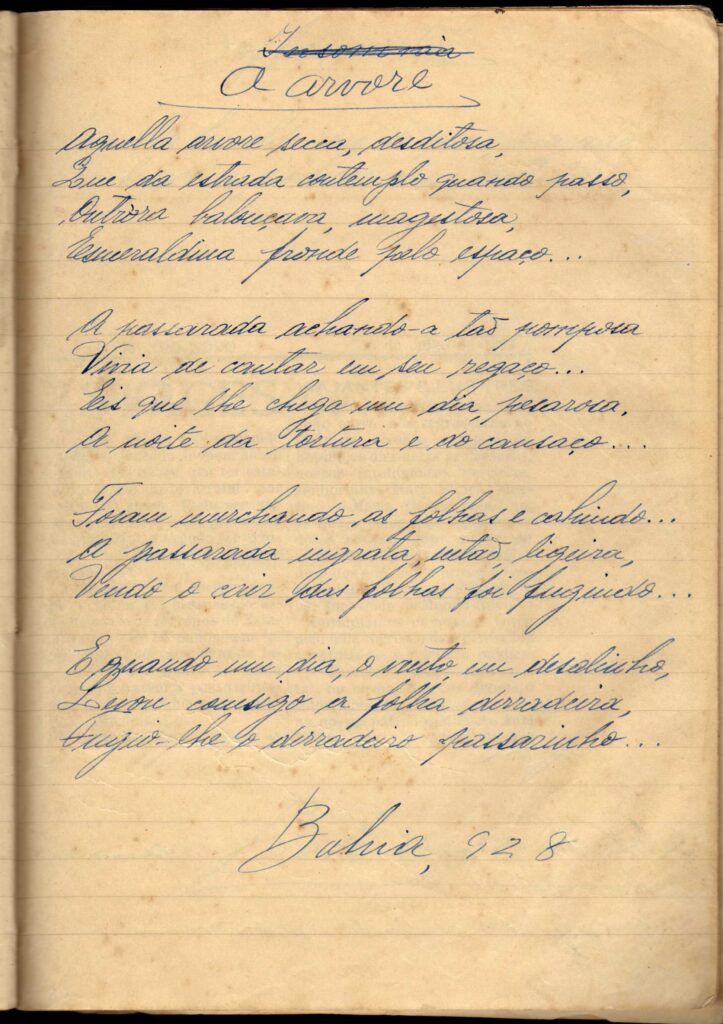 Insomnia
A arvore
Aquella arvore secca, desditosa,
Que da estrada contemplo quando passo,
Outróra balouçava, magestosa,
Esmeraldina fronde pelo espaço...
A passarada achando-a tão pomposa
Vivia de cantar em seu regaço...
Eis que lhe chega um dia, pesarosa,
A noite da tortura e do cansaço...
Foram murchando as folhas e cahindo...
A passarada ingrata, então, ligeira,
Vendo o cair das folhas foi fugindo...
E quando um dia, o vento, em desalinho,
Levou comsigo a folha derradeira,
Fugio-lhe o derradeiro passarinho...
Bahia, 928